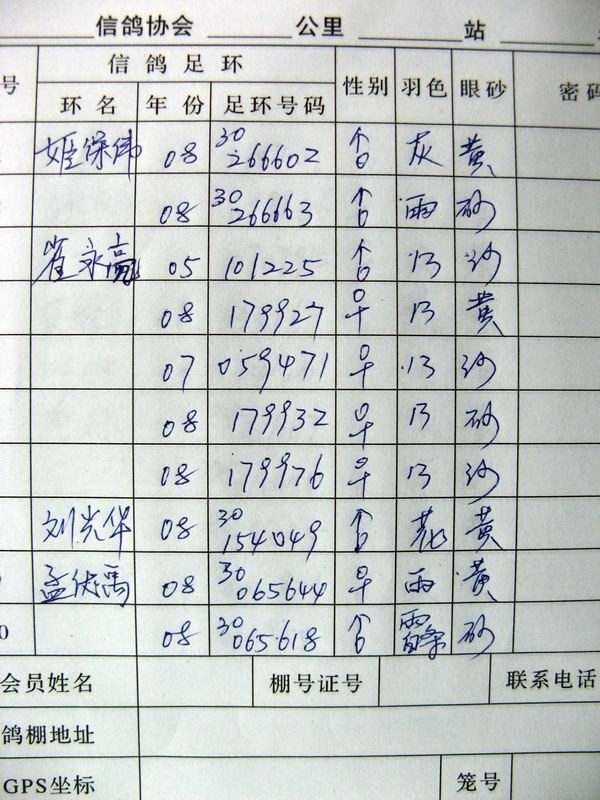 信鸽协会 公里 站
号 信鸽足环 性别 羽色 眼砂 密码
环名 年份 足环号码
姬保伟 08 30 266602 ♂ 灰 黄
08 30 266663 ♂ 雨 砂
崔永亮 05 101225 ♂ 13 沙
08 179927 ♀ 13 黄
07 059471 ♀ 13 沙
08 179932 ♀ 13 砂
08 179976 ♀ 13 沙
刘光华 08 30 154049 ♂ 花 黄
08 30 065644 ♀ 雨 黄
0 08 30 065618 ♂ 砂
会员姓名 棚号证号 联系电话
鸽棚地址
GPS坐标 笼号